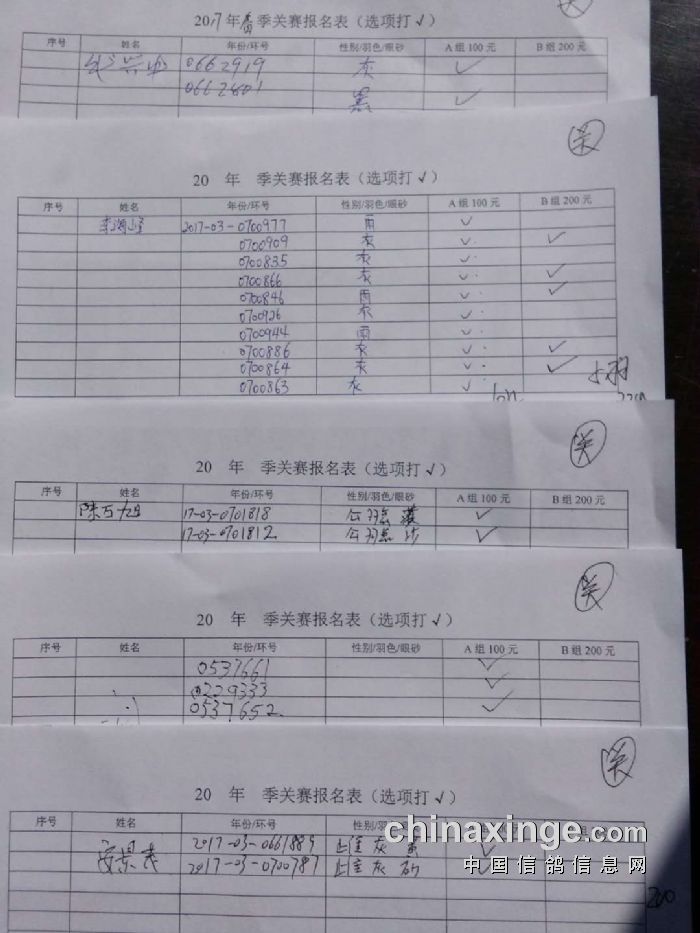 2017年春季关赛报名表（选项打√）
序号 姓名 年份/环号 性别/羽色/眼砂 A组100元 B组200元
0662919 灰 ✓
0662801 黑 ✓
关
20 年 季关赛报名表（选项打√）
序号 姓名 年份/环号 性别/羽色/眼砂 A组100元 B组200元
李海峰 2017-03-0700977 雨 ✓
0700909 灰 ✓ ✓
0700835 灰 ✓
0700866 灰 ✓ ✓
0700846 雨 ✓ ✓
0700926 灰 ✓
0700944 雨 ✓
0700886 灰 ✓ ✓
0700864 灰 ✓ ✓
0700863 灰 ✓
关
20 年 季关赛报名表（选项打√）
序号 姓名 年份/环号 性别/羽色/眼砂 A组100元 B组200元
陈万旭 17-03-0701818 ✓
17-03-0701812 ✓
关
20 年 季关赛报名表（选项打√）
序号 姓名 年份/环号 性别/羽色/眼砂 A组100元 B组200元
0537661 ✓
0229333 ✓
0537652 ✓
关
20 年 季关赛报名表（选项打√）
序号 姓名 年份/环号 性别/羽色
安景志 2017-03-0661889 雌灰黄 ✓
2017-03-0700787 雌灰砂 ✓
chinaxinge.com
中国信鸽信息网
200